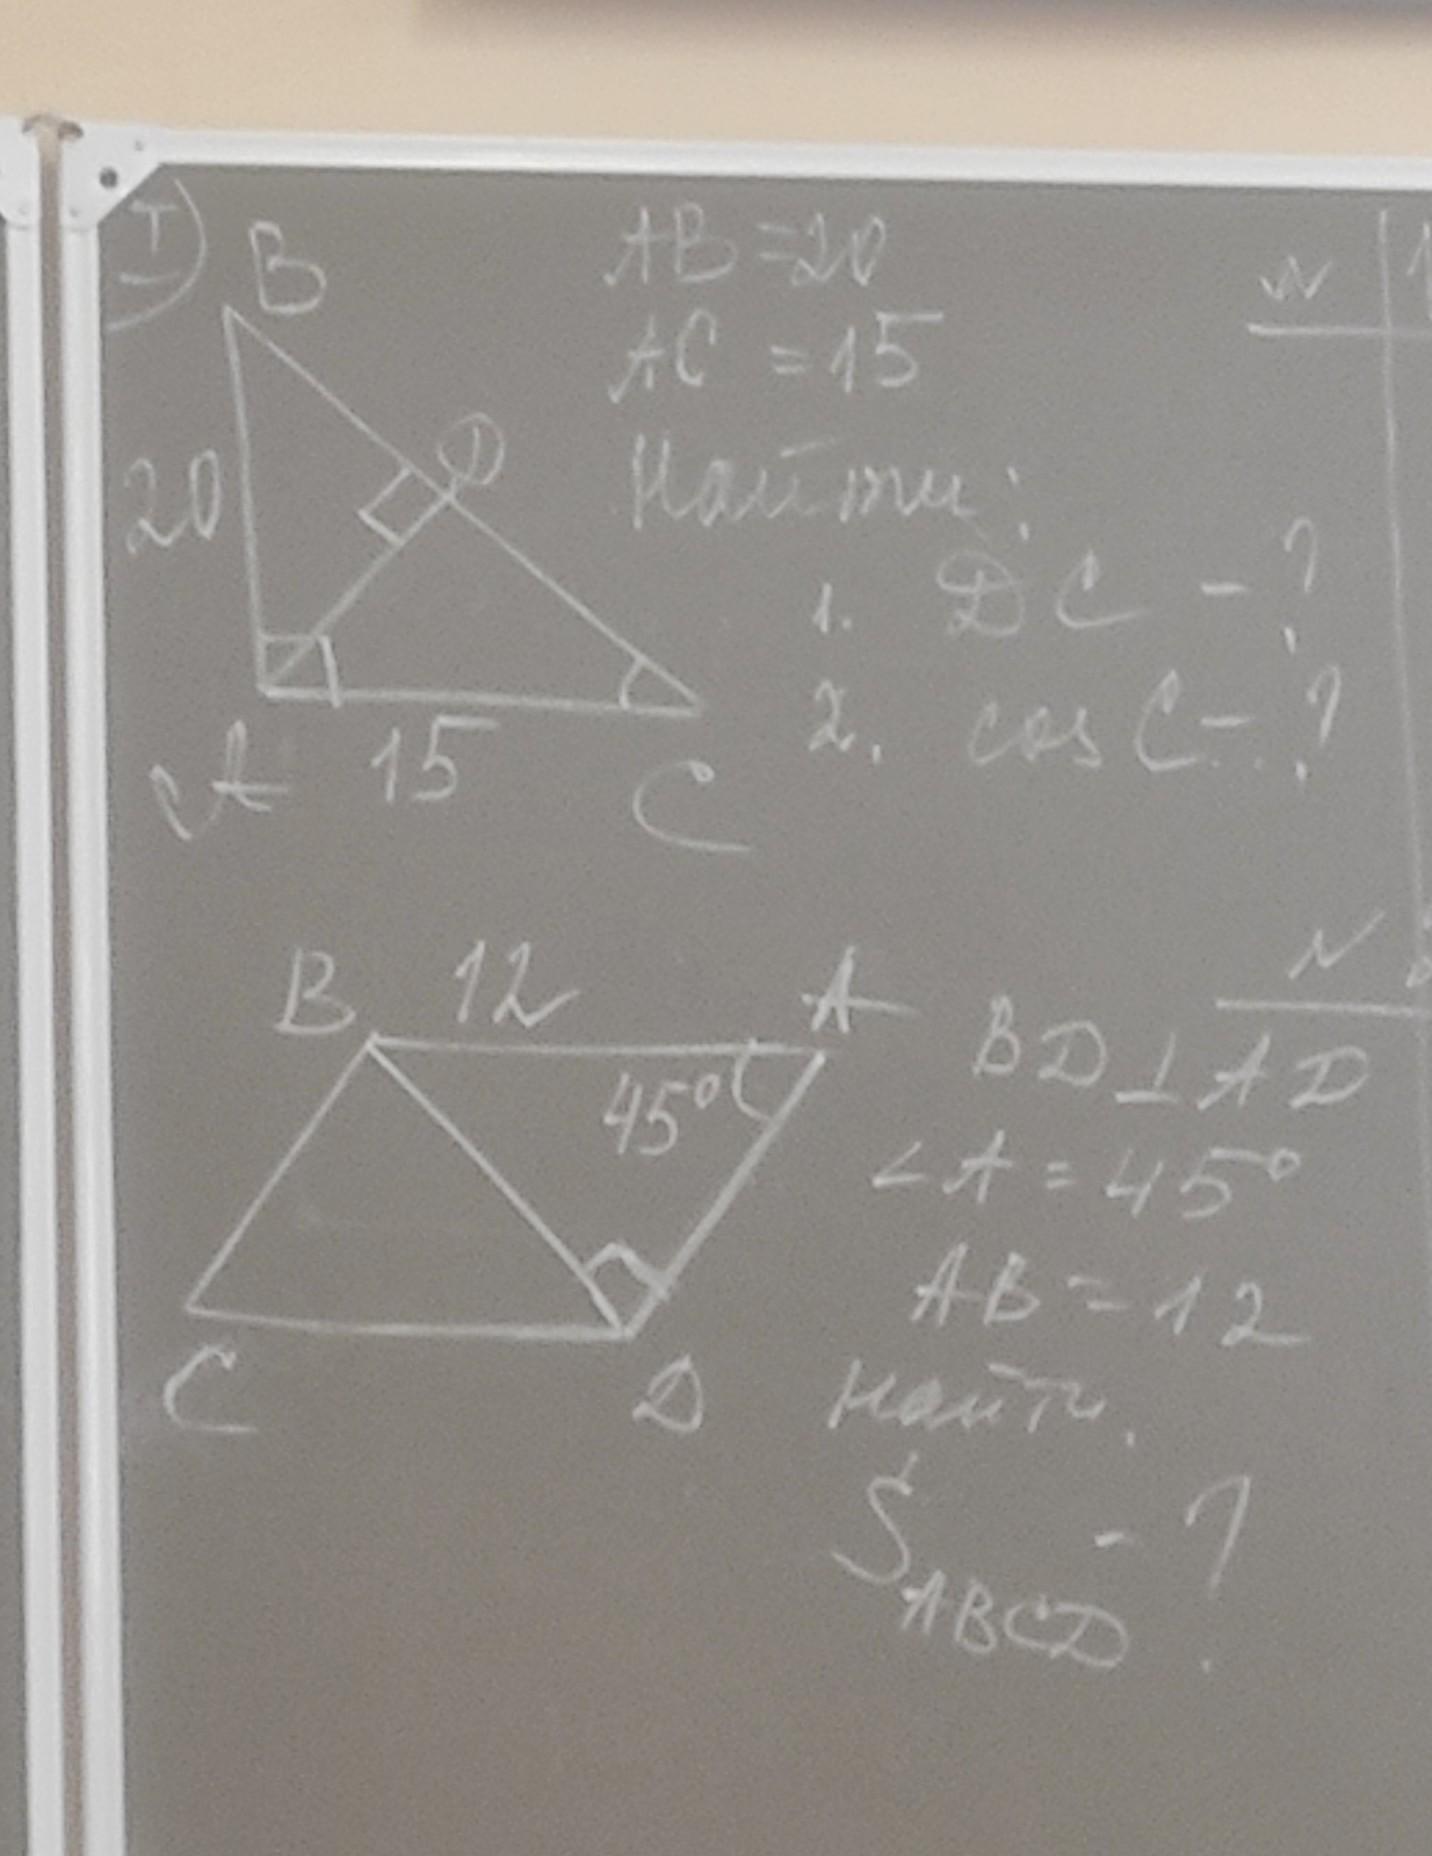 I)
B
AB = 20
AC = 15
20
D
Найти:
1. DC - ?
2. cos C - ?
A 15 C
N
B 12 A
45°
BD ⊥ AD
∠A = 45°
AB = 12
C D
Найти.
S ABCD - ?
N